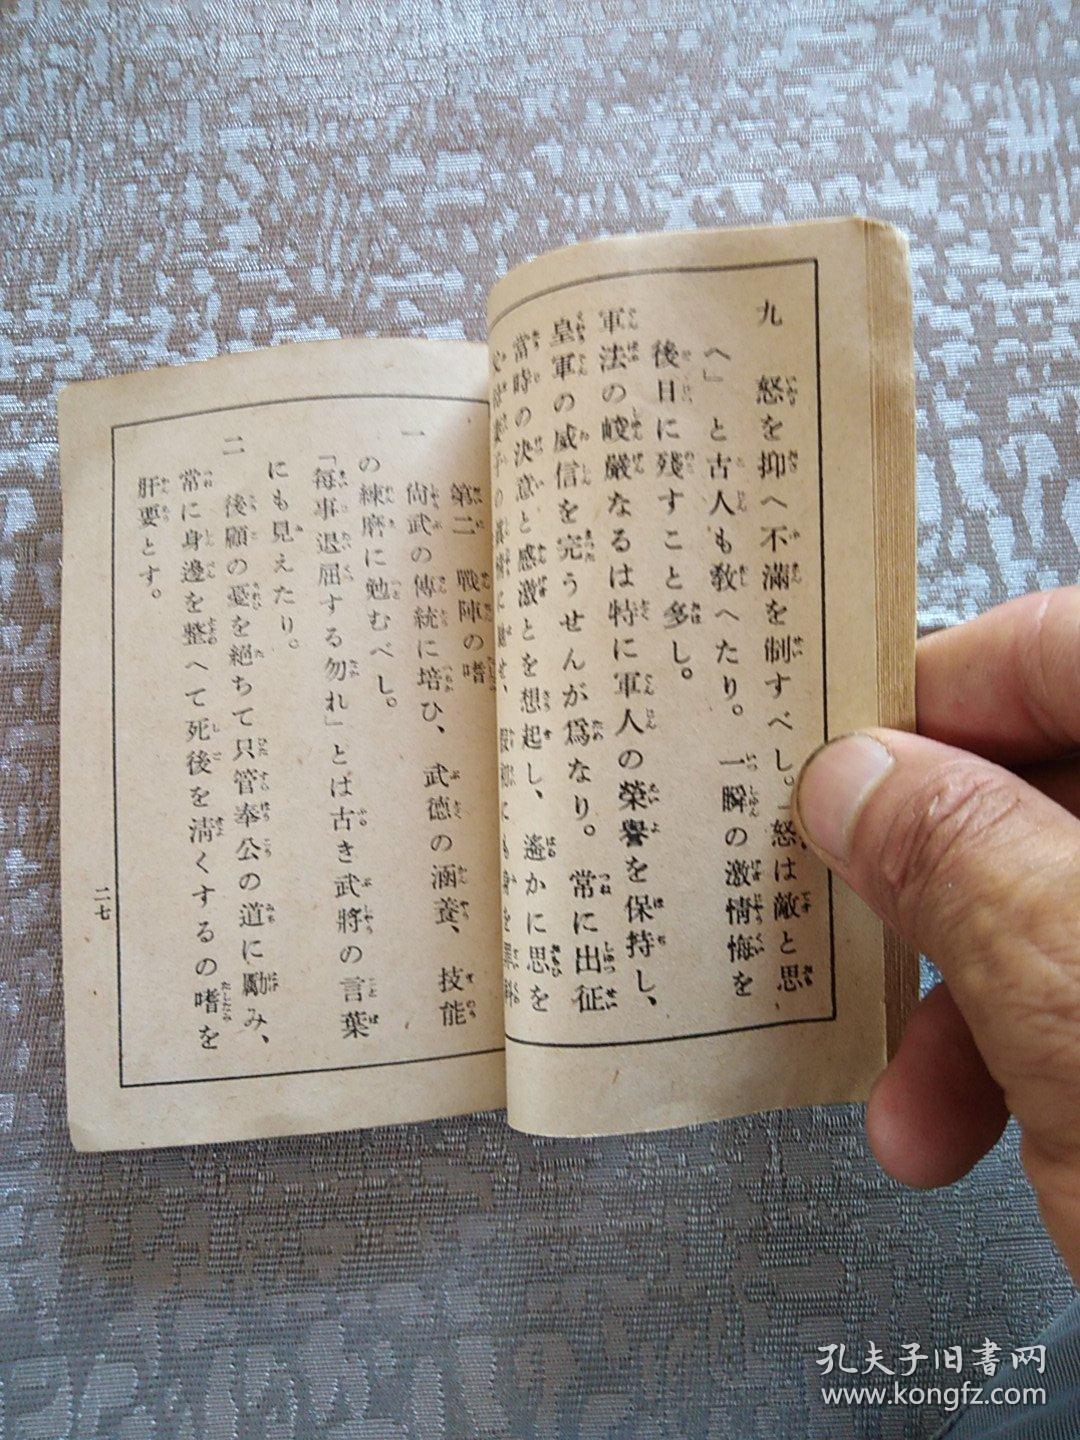 九 怒を抑へ不滿を制すべし。「怒は敵と思
へ」と古人も敎へたり。一瞬の激情悔を
後日に殘すこと多し。
軍法の峻嚴なるは特に軍人の榮譽を保持し、
皇軍の威信を完うせんが爲なり。常に出征
當時の決意と感激とを想起し、遙かに思を
第二 戰陣の嗜
一 尙武の傳統に培ひ、武德の涵養、技能
の練磨に勉むべし。
「每事退屈する勿れ」とは古き武將の言葉
にも見えたり。
二 後顧の憂を絕ちて只管奉公の道に勵み、
常に身邊を整へて死後を淸くするの嗜を
肝要とす。
二七
孔夫子旧書网
www.kongfz.com